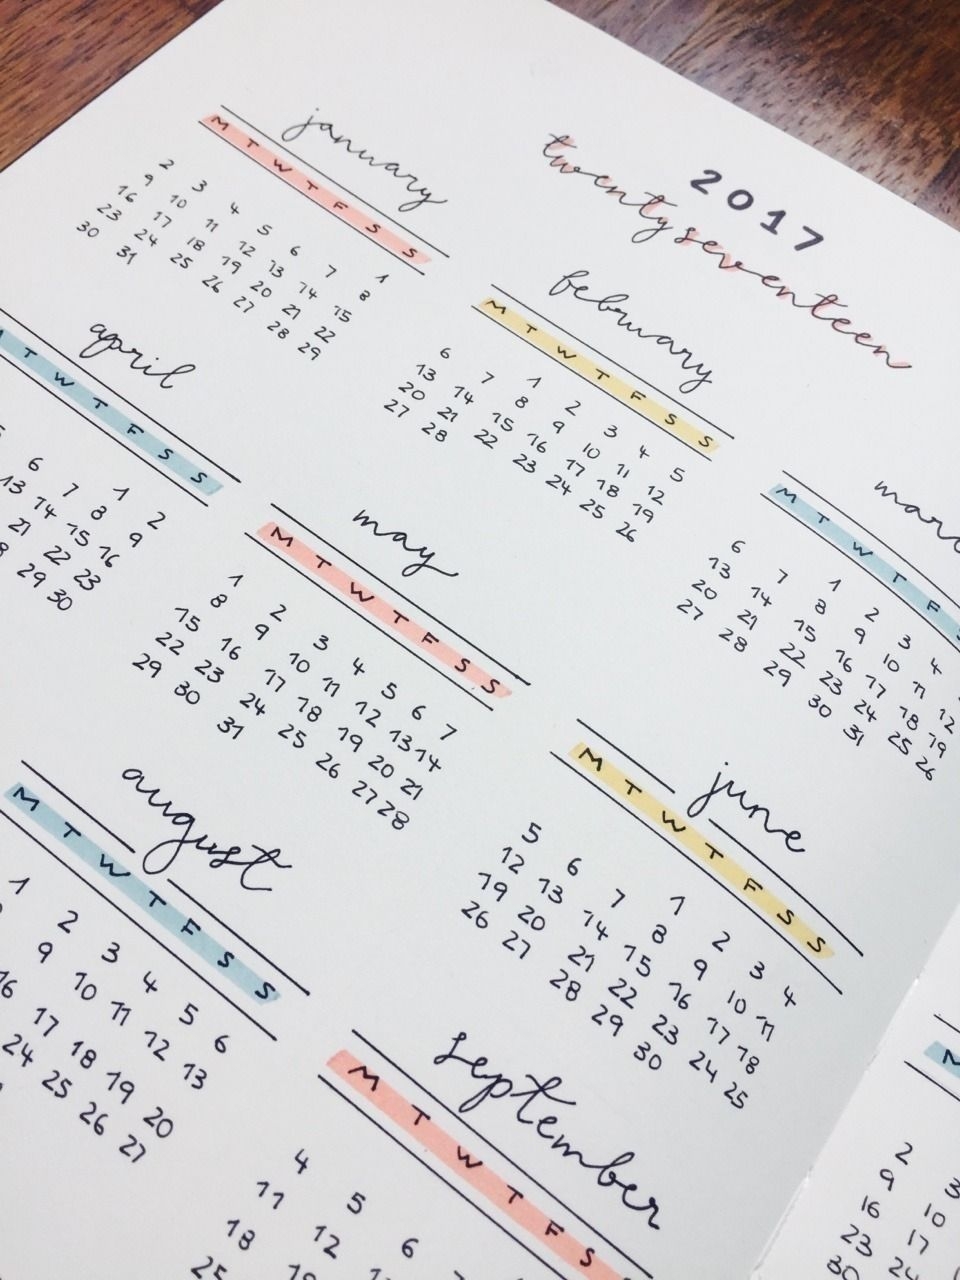 2017
twenty seventeen
january
M T W T F S S
1
2 3 4 5 6 7 8
9 10 11 12 13 14 15
16 17 18 19 20 21 22
23 24 25 26 27 28 29
30 31
february
M T W T F S S
1 2 3 4 5
6 7 8 9 10 11 12
13 14 15 16 17 18 19
20 21 22 23 24 25 26
27 28
marc
M T W T F S
1 2 3 4
6 7 8 9 10 11 12
13 14 15 16 17 18 19
20 21 22 23 24 25 26
27 28 29 30 31
april
T W T F S S
1 2
6 7 8 9
13 14 15 16
21 22 23
29 30
may
M T W T F S S
1 2 3 4 5 6 7
8 9 10 11 12 13 14
15 16 17 18 19 20 21
22 23 24 25 26 27 28
29 30 31
june
M T W T F S S
1 2 3 4
5 6 7 8 9 10 11
12 13 14 15 16 17 18
19 20 21 22 23 24 25
26 27 28 29 30
august
M T W T F S S
1 2 3 4 5 6
9 10 11 12 13
16 17 18 19 20
24 25 26 27
september
M T W T F S
4 5 6
11 12
18
25
M
2 3
9 10
16 17
23 24
30